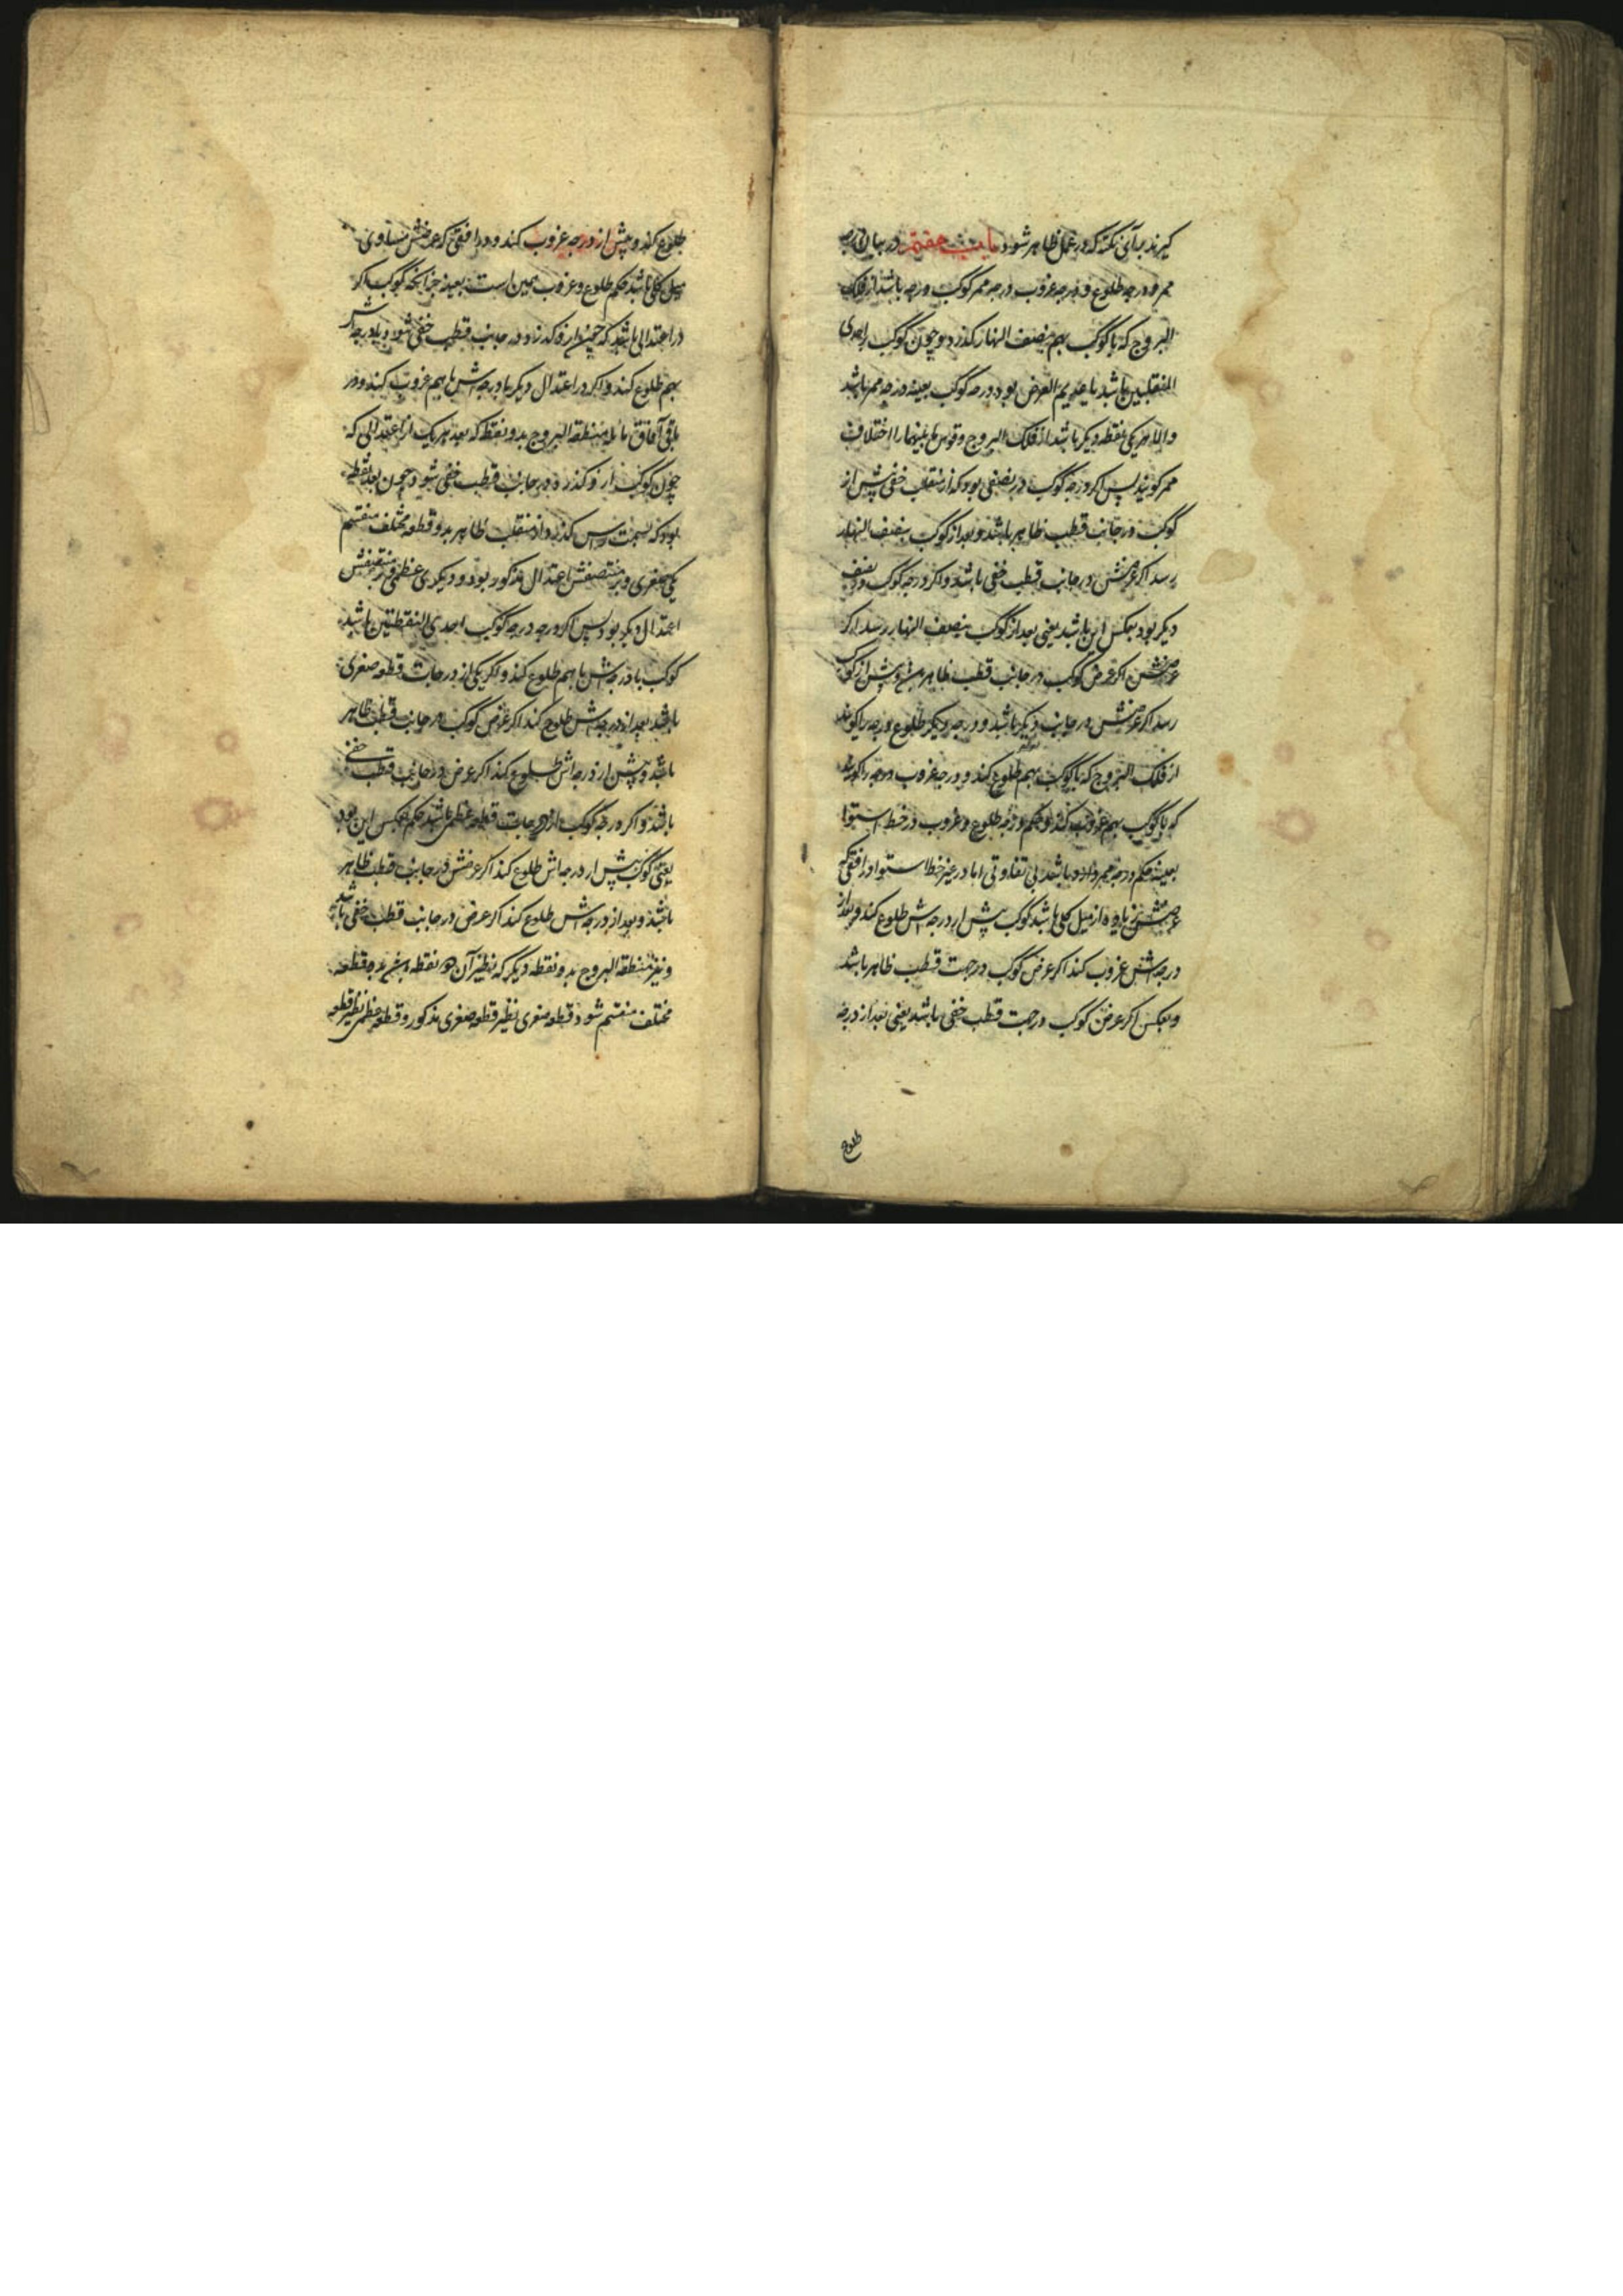 گیرند برای نکته که در عمل ظاهر شود باب هفتم در بیان درجه
ممر و درجه طلوع و درجه غروب درجه ممر کوکب درجه باشد از فلک
البروج که با کوکب بهم بنصف النهار گذرد و چون کوکب را احدی
المنقلبین باشد یا عدیم العرض بود درجه کوکب بعینه درجه ممر باشد
والا ممر یکی نقطه دیگر باشد از فلک البروج و قوس ما بینهما را اختلاف
ممر گویند پس اگر درجه کوکب در نصفی بود که از منقلب خفی پیش از
کوکب در جانب قطب ظاهر باشد و بعد از کوکب بنصف النهار
رسد اگر عرضش در جانب قطب خفی باشد و اگر درجه کوکب در نصف
دیگر بود بعکس این باشد یعنی بعد از کوکب بنصف النهار رسد اگر
عرضش اگر عرض کوکب در جانب قطب ظاهر پیش از کوکب
رسد اگر عرضش در جانب دیگر باشد و درجه دیگر طلوع درجه را گویند
از فلک البروج که با کوکب بهم طلوع کند و درجه غروب درجه را گویند
که با کوکب بهم غروب کند و حکم درجه طلوع و غروب در خط استوا
بعینه حکم درجه ممر دارد باشد بی تفاوتی اما در غیر خط استوا در افقی که
عرضش زیاده از میل کلی باشد کوکب پیش از درجه اش طلوع کند و بعد از
درجه اش غروب کند اگر عرض کوکب در جهت قطب ظاهر باشد
و بعکس اگر عرض کوکب در جهت قطب خفی باشد یعنی بعد از درجه
طلوع
طلوع کند و پیش از درجه غروب کند و در افقی که عرضش مساوی
میل کلی باشد حکم طلوع و غروب همین است بعینه چنانچه کوکب اگر
در اعتدالی باشد که چون ازو گذرد در جانب قطب خفی شود با درجه اش
بهم طلوع کند و اگر در اعتدال دیگر با درجه اش باهم غروب کند و در
باقی آفاق مائله منطقه البروج بدو نقطه که بعد هر یک از اعتدالی که
چون کوکب ازو گذرد در جانب قطب خفی شود چون بعد نقطه
بود که بسمت راس گذرد از منقلب ظاهر بدو قطعه مختلف منقسم
یکی صغری و بر منتصفش اعتدال مذکور بود و دیگری عظمی و بر منتصفش
اعتدال دیگر بود پس اگر درجه درجه کوکب احدی النقطتین باشد
کوکب با درجه اش باهم طلوع کند و اگر یکی از درجات قطعه صغری
باشد بعد از درجه اش طلوع کند اگر عرض کوکب در جانب قطب ظاهر
باشد و پیش از درجه اش طلوع کند اگر عرض در جانب قطب خفی
باشد و اگر درجه کوکب از درجات قطعه عظمی باشد حکم بعکس این بود
یعنی کوکب پیش از درجه اش طلوع کند اگر عرضش در جانب قطب ظاهر
باشد و بعد از درجه اش طلوع کند اگر عرض در جانب قطب خفی باشد
و نیز منطقه البروج بدو نقطه دیگر که نظیر آن دو نقطه بدو قطعه
مختلف منقسم شود قطعه صغری نظیر قطعه صغری مذکور و قطعه عظمی نظیر قطعه